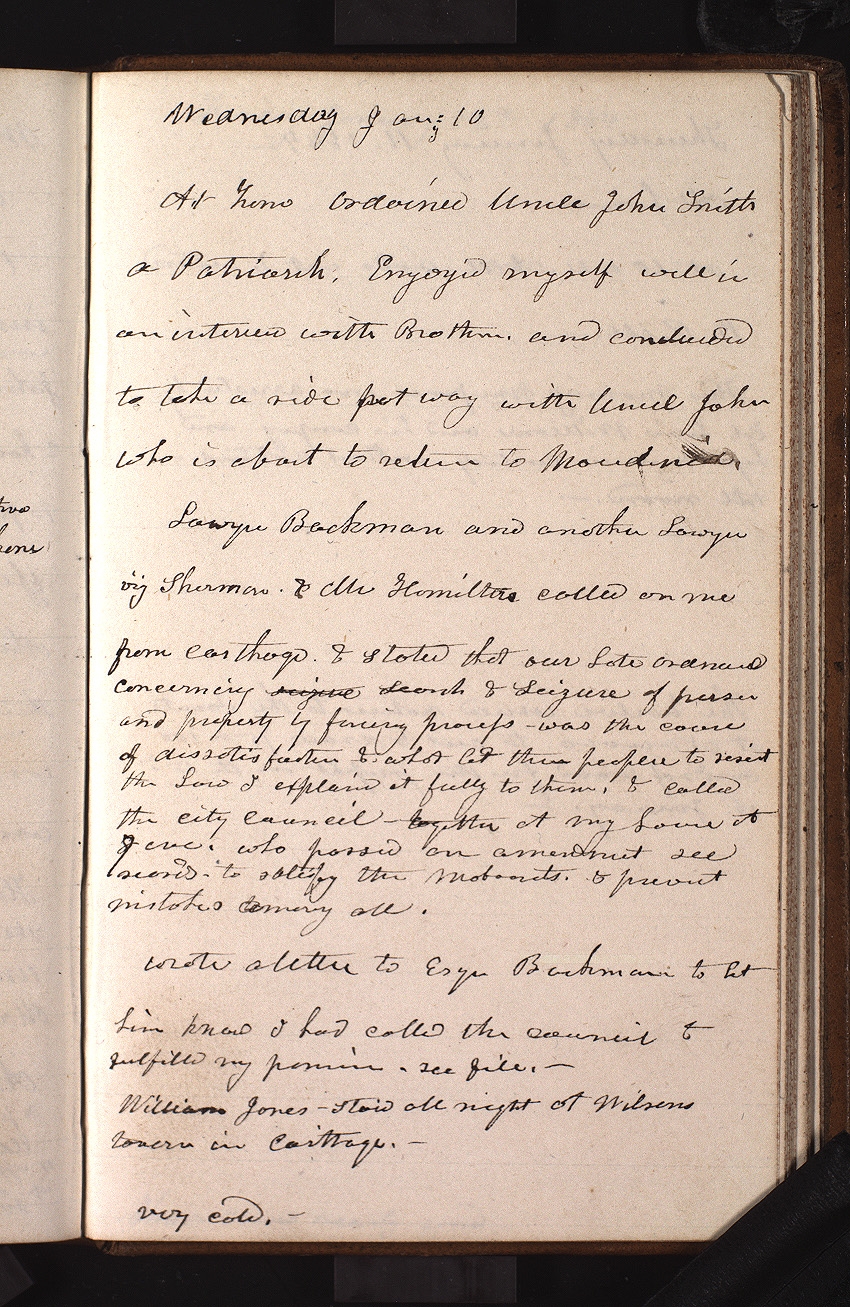 Wednesday Jany 10
At home ordained Uncle John Smith
a Patriarch. Enjoyed myself well in
an interview with Brothrn. and concluded
to take a ride part way with Uncle John
who is about to return to Macedonia.
Lawyer Backman and another Lawyer
viz Sherman. & Mr Hamilton called on me
from Carthage. & stated that our late ordinance
concerning seizure search & Seizure of person
and property by foreign process - was the cause
of dissatisfaction & what led the people to resist
the Law I explaind it fully to them. & called
the city council - together at my house at
7 eve. who passed an amendment see
records. to satisfy the Mobocrats. & prevent
mistakes among all.
wrote a letter to Esqr Backman to let
him know I had called the council &
fulfilled my promise. see file. —
William Jones - staid all night at Wilsons
tavern in Carthage. —
very cold. —
two